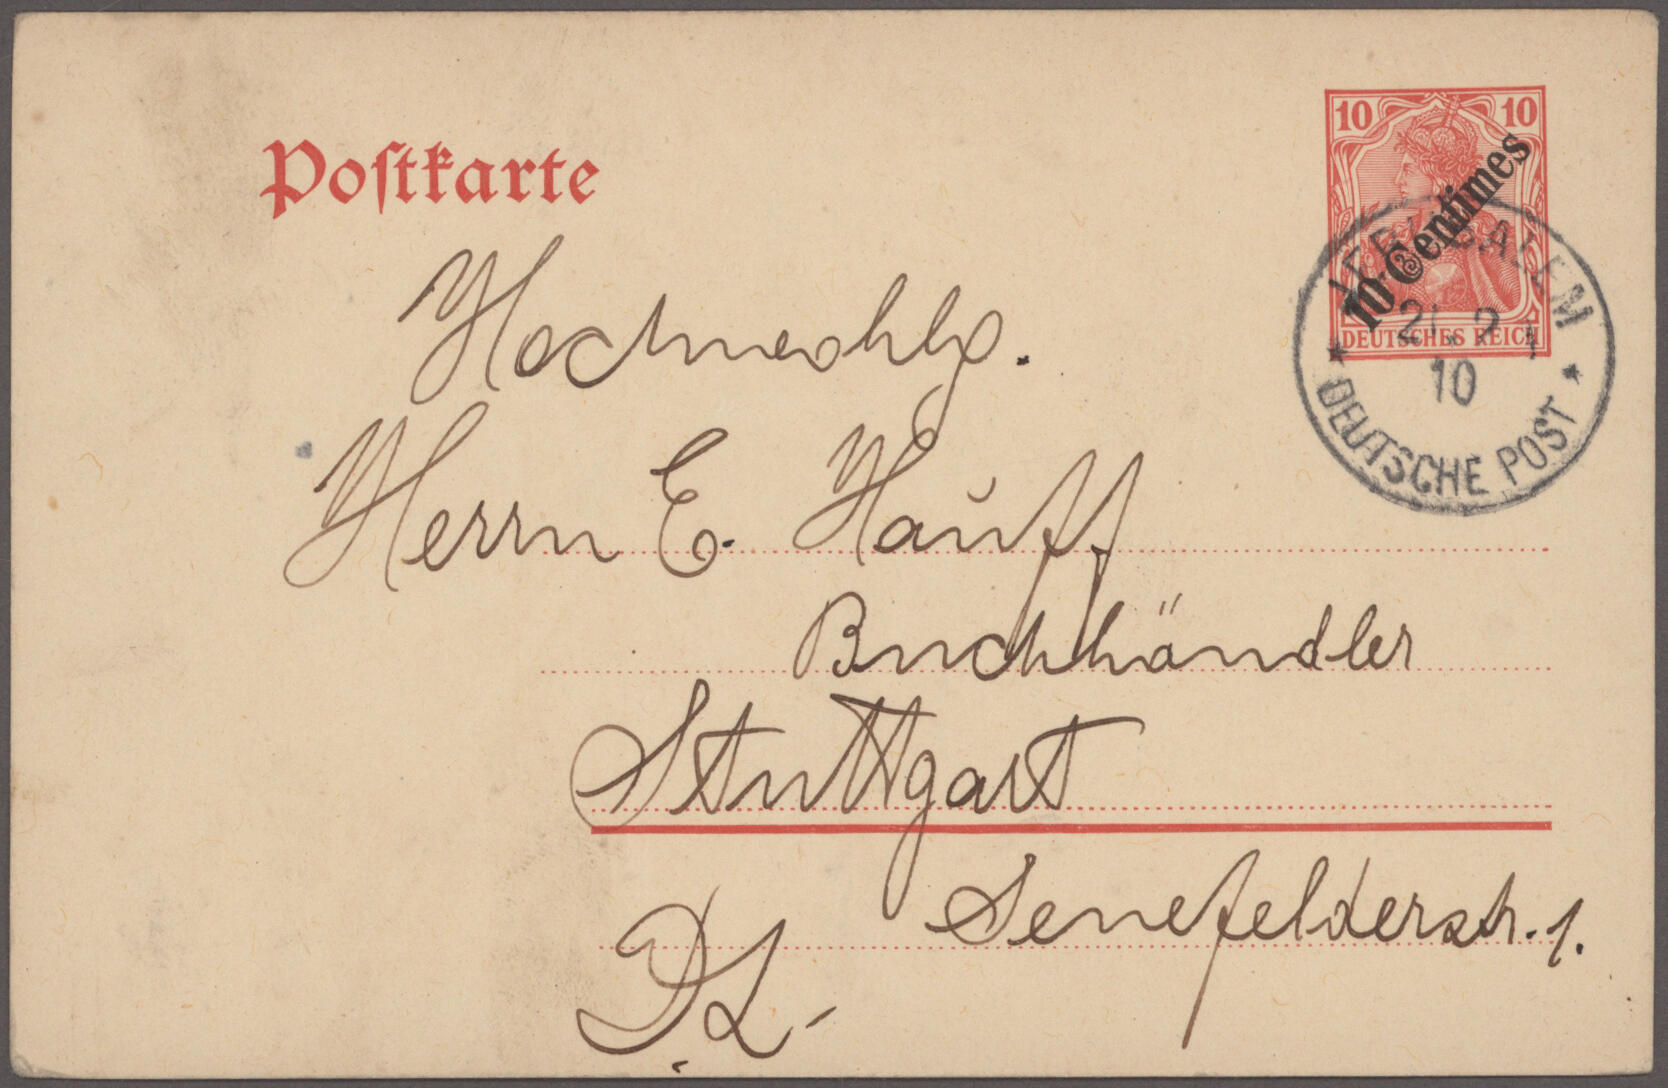 Postkarte
10 10
10 Centimes
DEUTSCHES REICH
JERUSALEM
10
DEUTSCHE POST
Hochwohlg.
Herrn E. Hauff
Buchhändler
Stuttgart
Senefelderstr. 1.